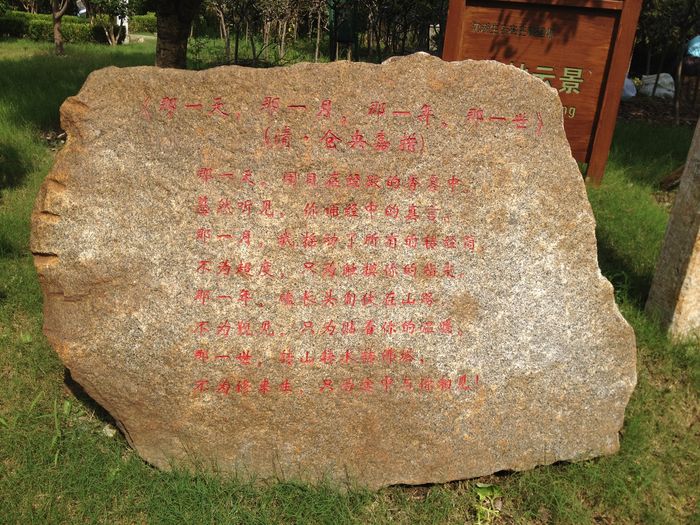 《那一天，那一月，那一年，那一世》
(清·仓央嘉措)
那一天，闭目在经殿的香雾中，
蓦然听见，你诵经中的真言。
那一月，我摇动了所有的转经筒，
不为超度，只为触摸你的指尖。
那一年，磕长头匍伏在山路，
不为觐见，只为贴着你的温暖，
那一世，转山转水转佛塔，
不为修来生，只为途中与你相见！
云景
ng